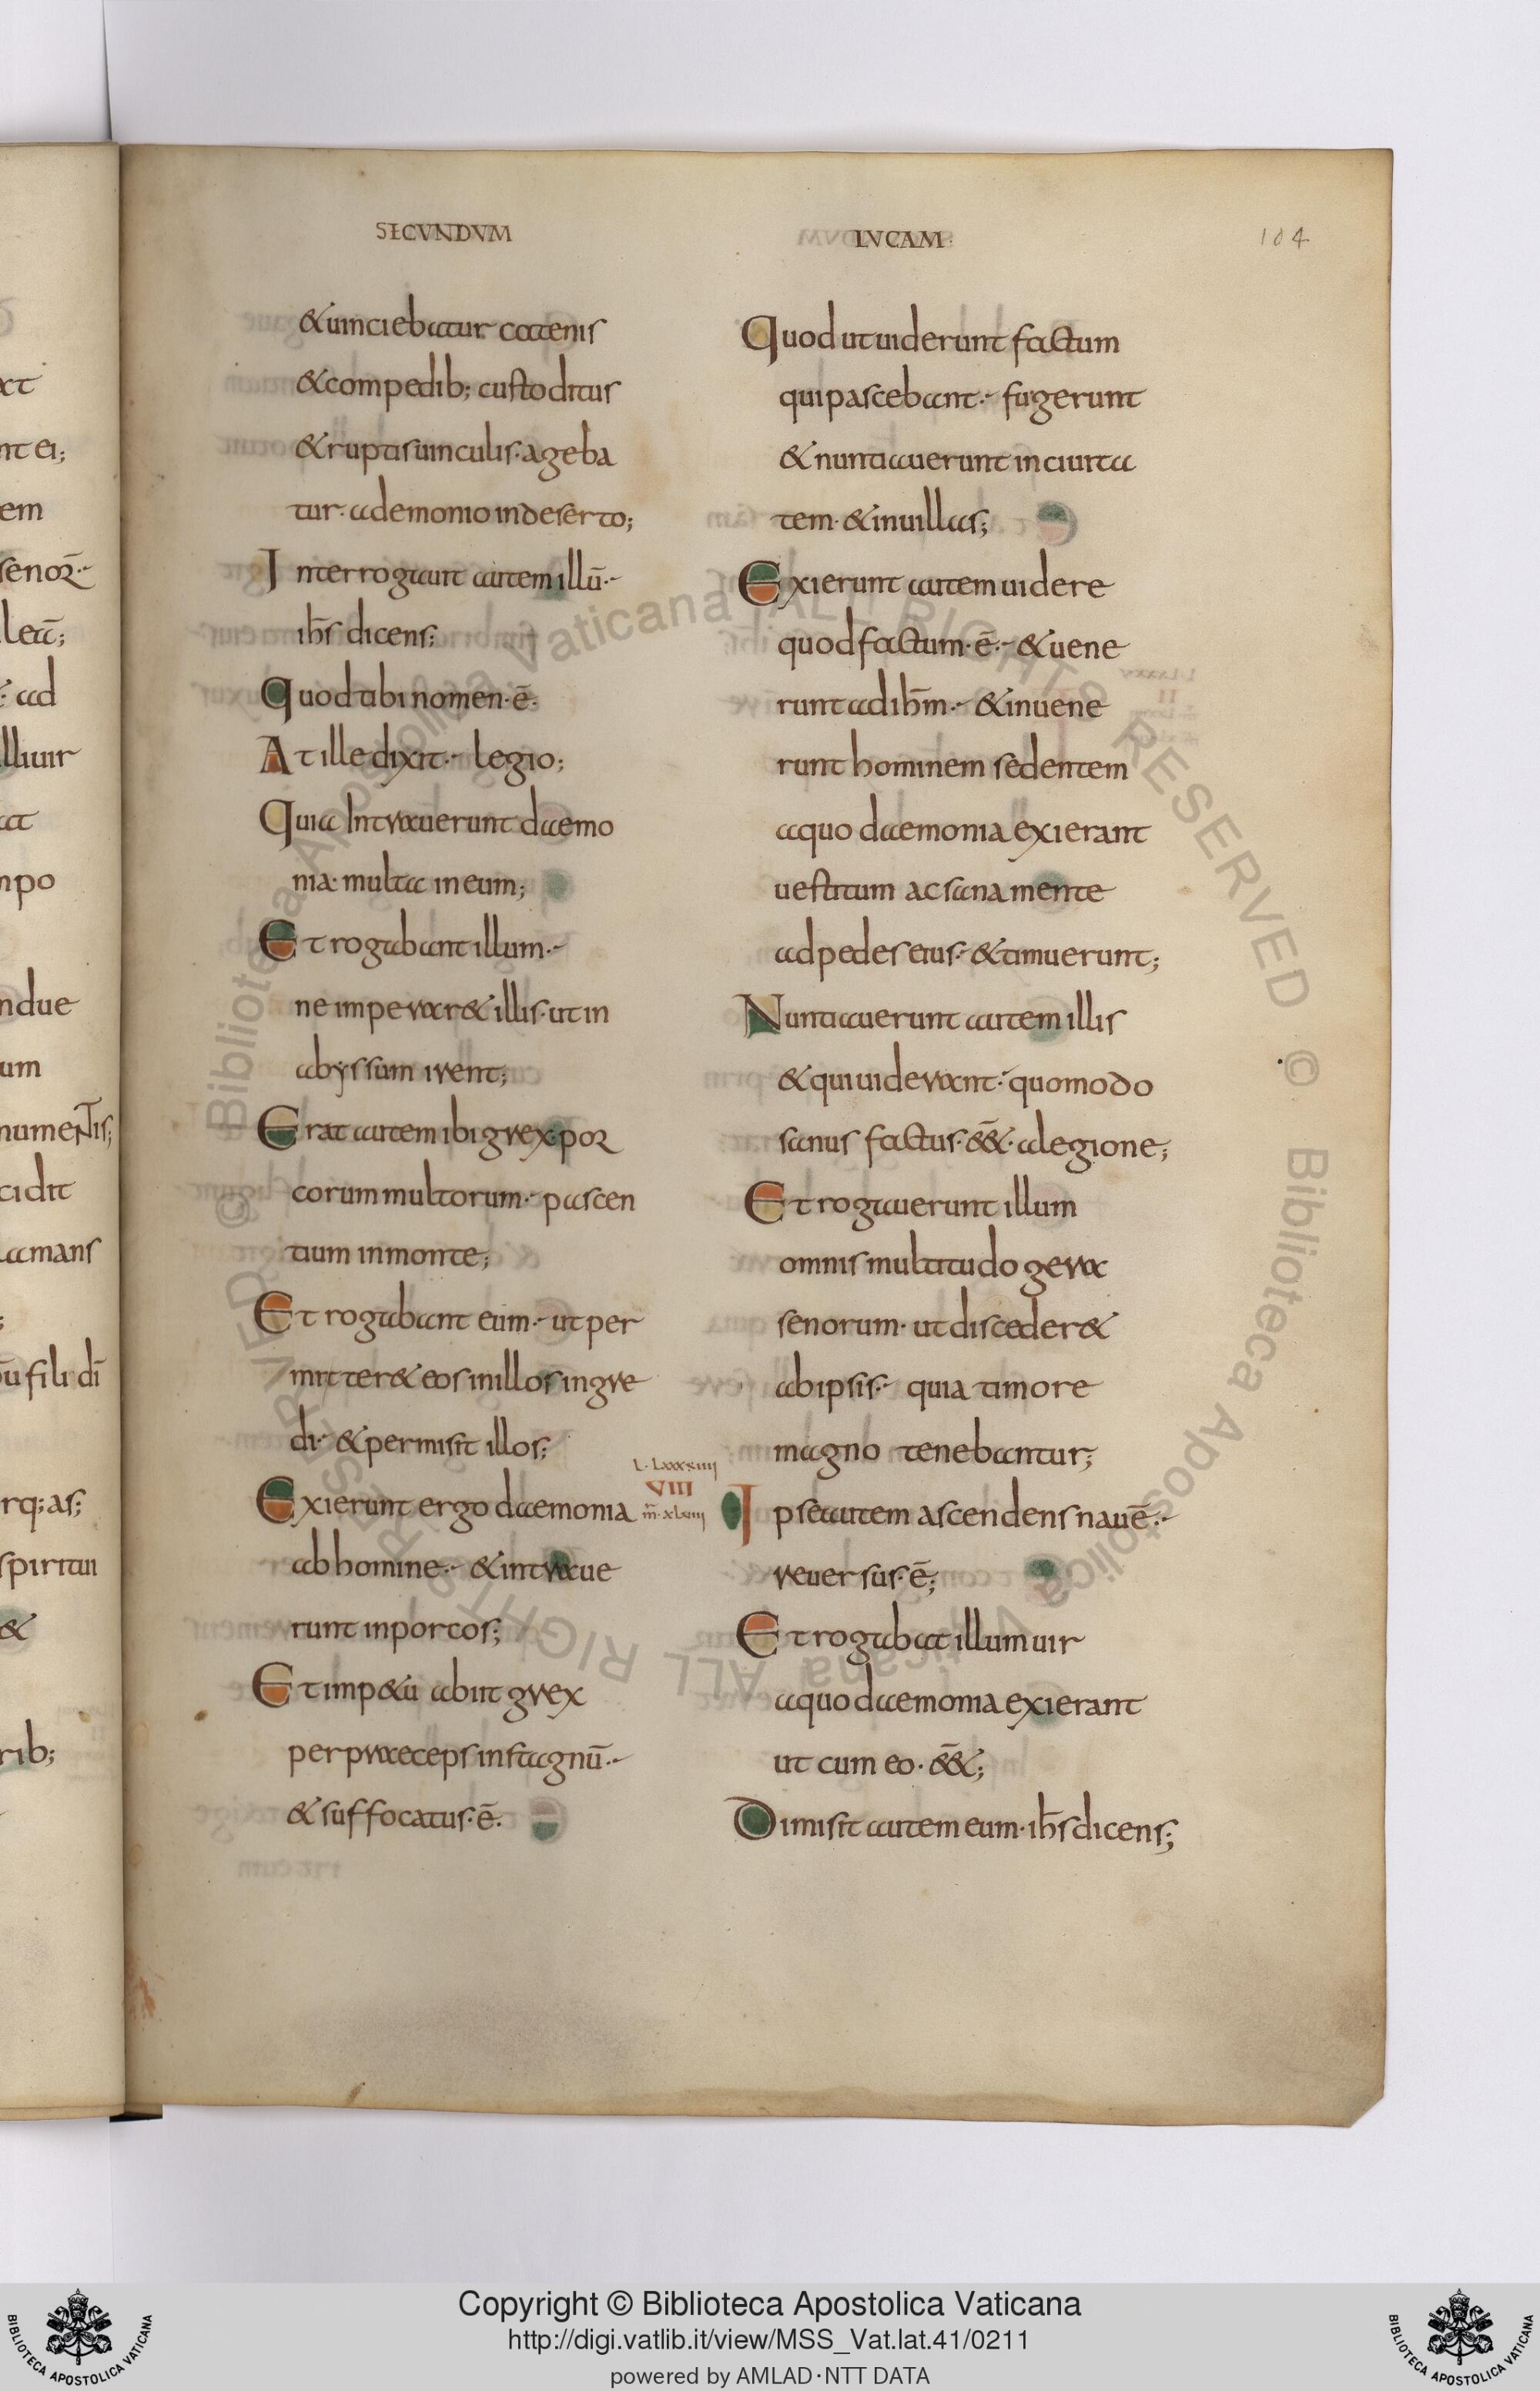 SECVNDVM
LVCAM
104
& uinciebatur catenis
& compedib; custoditus
& ruptis uinculis· ageba
tur· a demonio in deserto;
Interrogauit autem illū·-
ih̄s dicens;
Quod tibi nomen·ē·
At ille dixit·- legio;
Quia Intrauerunt daemo
nia· multa in eum;
Et rogabant illum·-
ne imperar& illis· ut in
abyssum irent;
Erat autem ibi grex·por
corum multorum·- pascen
tium in monte;
Et rogabant eum·- ut per
mitter& eos in illos ingre
di·- & permisit illos;
Exierunt ergo daemonia
ab homine·- & intraue
runt in porcos;
Et imp&u abiit grex
per praeceps in stagnū·-
& suffocatus·ē·
Quod ut uiderunt factum
qui pascebant·- fugerunt
& nuntiauerunt in ciuita
tem· & in uillas;
Exierunt autem uidere
quod factum·ē·- & uene
runt ad ih̄m·- & inuene
runt hominem sedentem
a quo daemonia exierant
uestitum ac sana mente
ad pedes eius·- & timuerunt;
Nuntiauerunt autem illis
& qui uiderant·- quomodo
sanus factus·ēē&· a legione;
Et rogauerunt illum
omnis multitudo gera
senorum· ut disceder&
ab ipsis·- quia timore
magno tenebantur;
L·LXXXIIII
VIII
m̄·xluiii
Ipse autem ascendens nauē·-
reuersus·ē;
Et rogabat illum uir
a quo daemonia exierant
ut cum eo· ēē&;
Dimisit autem eum· ih̄s dicens;
© Biblioteca Apostolica Vaticana ALL RIGHTS RESERVED
© Biblioteca Apostolica Vaticana ALL RIGHTS RESERVED
BIBLIOTECA APOSTOLICA VATICANA
Copyright © Biblioteca Apostolica Vaticana
http://digi.vatlib.it/view/MSS_Vat.lat.41/0211
powered by AMLAD·NTT DATA
BIBLIOTECA APOSTOLICA VATICANA